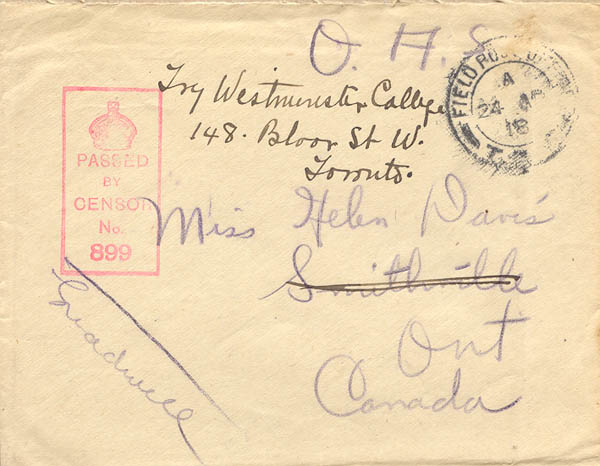 O. H. S.
FIELD POST OFFICE
A
24 AP
18
T.
Try Westminster College
148. Bloor St W.
Toronto.
PASSED
BY
CENSOR
No.
899
Miss Helen Davis
Smithville
Ont
Canada